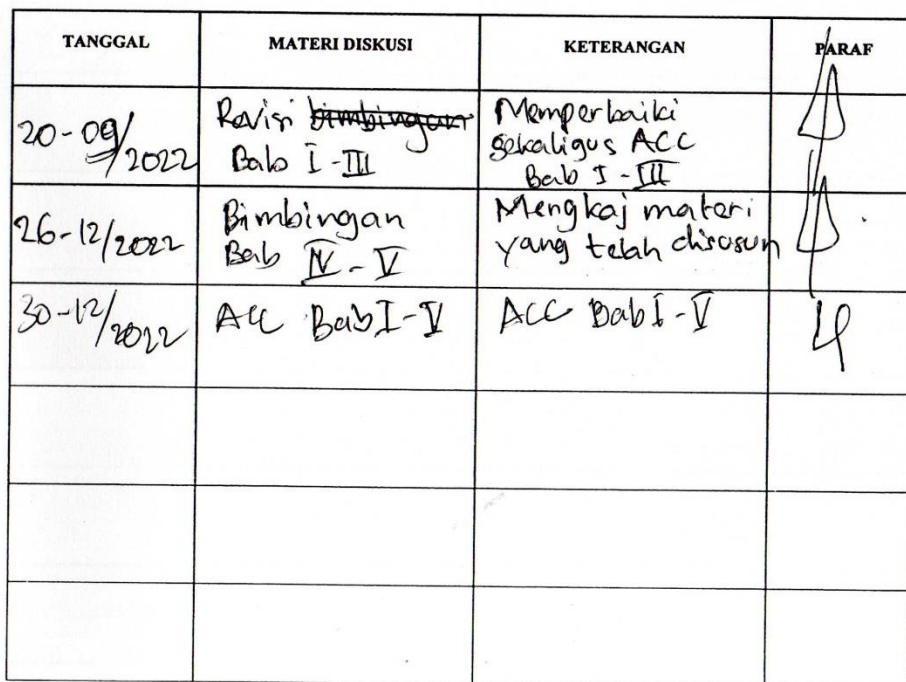 TANGGAL MATERI DISKUSI KETERANGAN PARAF
20-09/2022
Revisi bimbingan
Bab I-III
Memperbaiki
sekaligus ACC
Bab I-III
26-12/2022
Bimbingan
Bab IV-V
Mengkaj materi
yang telah disusun
30-12/2022
ACC Bab I-V
ACC Bab I-V